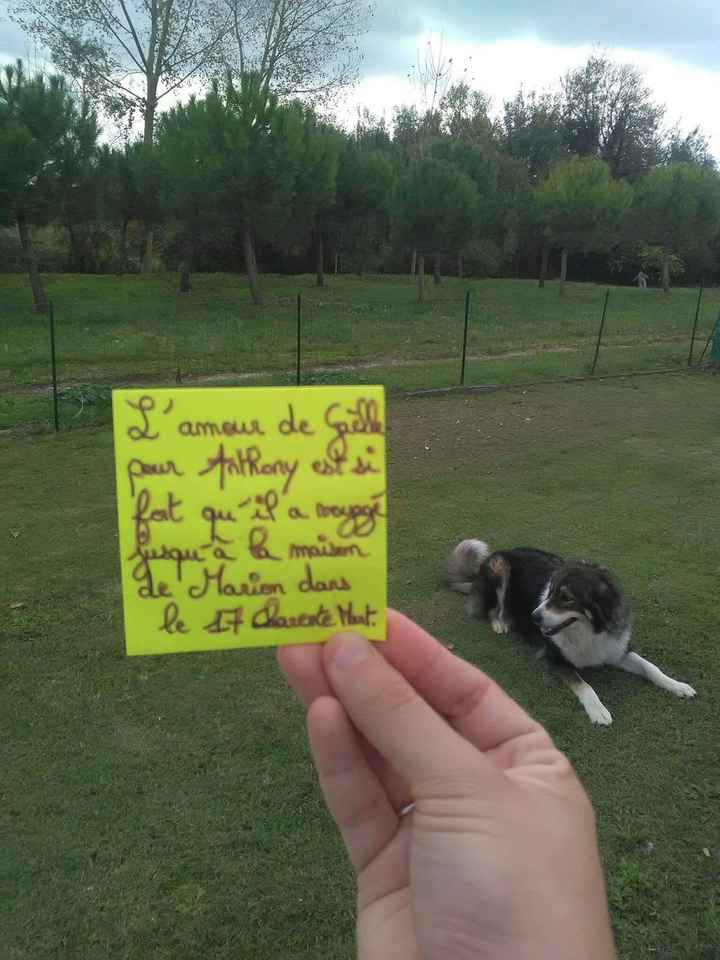 L'amour de Gaëlle
pour Anthony est si
fort qu'il a voyagé
jusqu'à la maison
de Marion dans
le 17 Charente Marit.